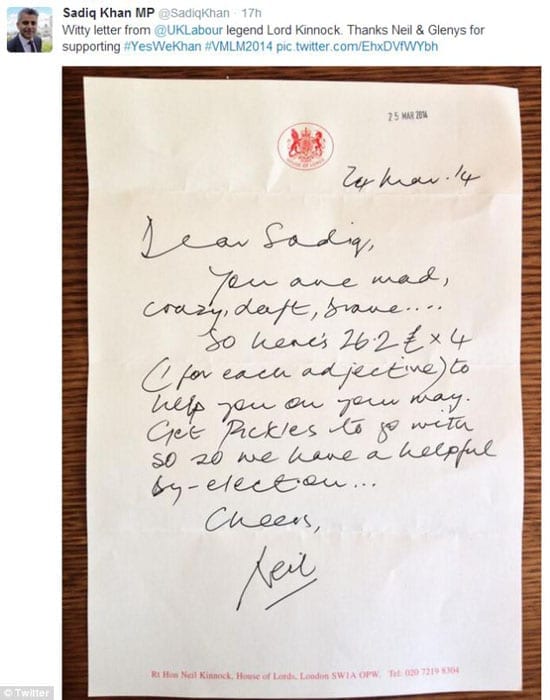 Sadiq Khan MP @SadiqKhan · 17h
Witty letter from @UKLabour legend Lord Kinnock. Thanks Neil & Glenys for
supporting #YesWeKhan #VMLM2014 pic.twitter.com/EhxDVfWYbh
25 MAR 2014
HOUSE OF LORDS
24 Mar. '14
Dear Sadiq,
You are mad,
crazy, daft, brave....
So here's 26.2 £ x 4
(1 for each adjective) to
help you on your way.
Get Pickles to go with
so so we have a helpful
by-election...
Cheers,
Neil
Rt Hon Neil Kinnock, House of Lords, London SW1A OPW. Tel: 020 7219 8304
© Twitter